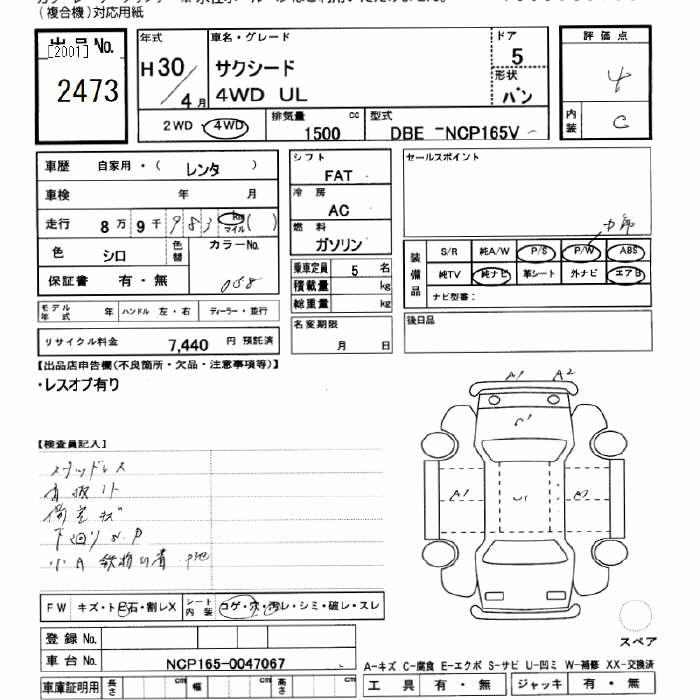 (複合機)対応用紙
出品No.
[2001]
2473
年式
H30/4月
車名・グレード
サクシード
4WD UL
ドア
5
形状
バン
評価点
4
内装
C
2WD・4WD
排気量
1500 cc
型式
DBE-NCP165V
車歴 自家用・( レンタ )
車検 年 月
走行 8万9千983 km マイル ( )
色 シロ
色替
カラーNo.
058
保証書 有・無
シフト
FAT
冷房
AC
燃料
ガソリン
乗車定員 5 名
積載量 kg
総重量 kg
名変期限
月 日
セールスポイント
装備品
S/R 純A/W P/S P/W ABS
純TV 純ナビ 革シート 外ナビ エアB
ナビ型番:
後日品
モデル年式 年 ハンドル 左・右 ディーラー・並行
リサイクル料金 7,440 円 預託済
【出品店申告欄(不良箇所・欠品・注意事項等)】
・レスオプ有り
【検査員記入】
A1 A2
U1
A1 U1 A2
FW キズ・トビ石・割レX
シート内装 コゲ・穴・汚レ・シミ・破レ・スレ
登録No.
車台No. NCP165-0047067
車庫証明用 長さ cm 幅 cm 高さ cm
スペア
A-キズ C-腐食 E-エクボ S-サビ U-凹ミ W-補修 XX-交換済
工具 有・無 ジャッキ 有・無